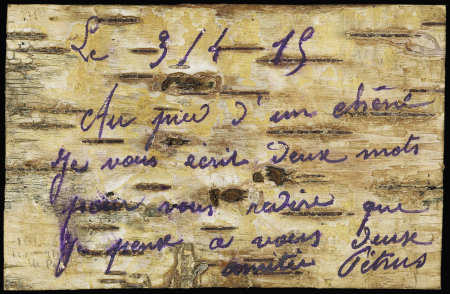 Le 3/4-15
Au pied d'un chêne
Je vous écrit deux mots
pour vous redire que
Je pense a vous deux
amitié Pétrus